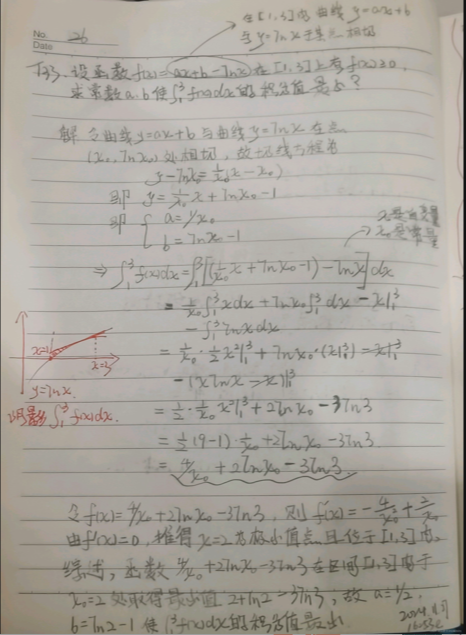 在[1,3]内 曲线 y=ax+b
与 y=lnx 于某点相切
No. 26
Date
设函数 f(x)=ax+b-lnx, 在[1,3]上有f(x)≥0
求常数a.b使∫₁³f(x)dx的积分值最小?
解 令曲线y=ax+b与曲线y=lnx在点
(x₀,lnx₀)处相切,故切线方程为
y-lnx₀=1/x₀(x-x₀)
即 y=1/x₀ x+lnx₀-1
即 { a=1/x₀
b=lnx₀-1
x是自变量
x₀是常量
⇒ ∫₁³f(x)dx=∫₁³[(1/x₀ x+lnx₀-1)-lnx]dx
= 1/x₀∫₁³xdx+lnx₀∫₁³dx-x|₁³
-∫₁³lnxdx
= 1/x₀·1/2x²|₁³+lnx₀·(x|₁³)-x|₁³
-(xlnx-x)|₁³
= 1/2·1/x₀ x²|₁³+2lnx₀-3ln3
= 1/2(9-1)·1/x₀+2lnx₀-3ln3
= 4/x₀+2lnx₀-3ln3
x=1
x=3
y=lnx.
阴影 ∫₁³f(x)dx.
令f(x)=4/x₀+2lnx₀-3ln3, 则f'(x)=-4/x₀²+2/x₀
由f'(x)=0,推得x=2为极小值点且位于[1,3]内.
综述,函数4/x₀+2lnx₀-3ln3在区间[1,3]内于
x₀=2处取得最小值2+2ln2-3ln3,故a=1/2,
b=ln2-1使∫₁³f(x)dx的积分值最小.